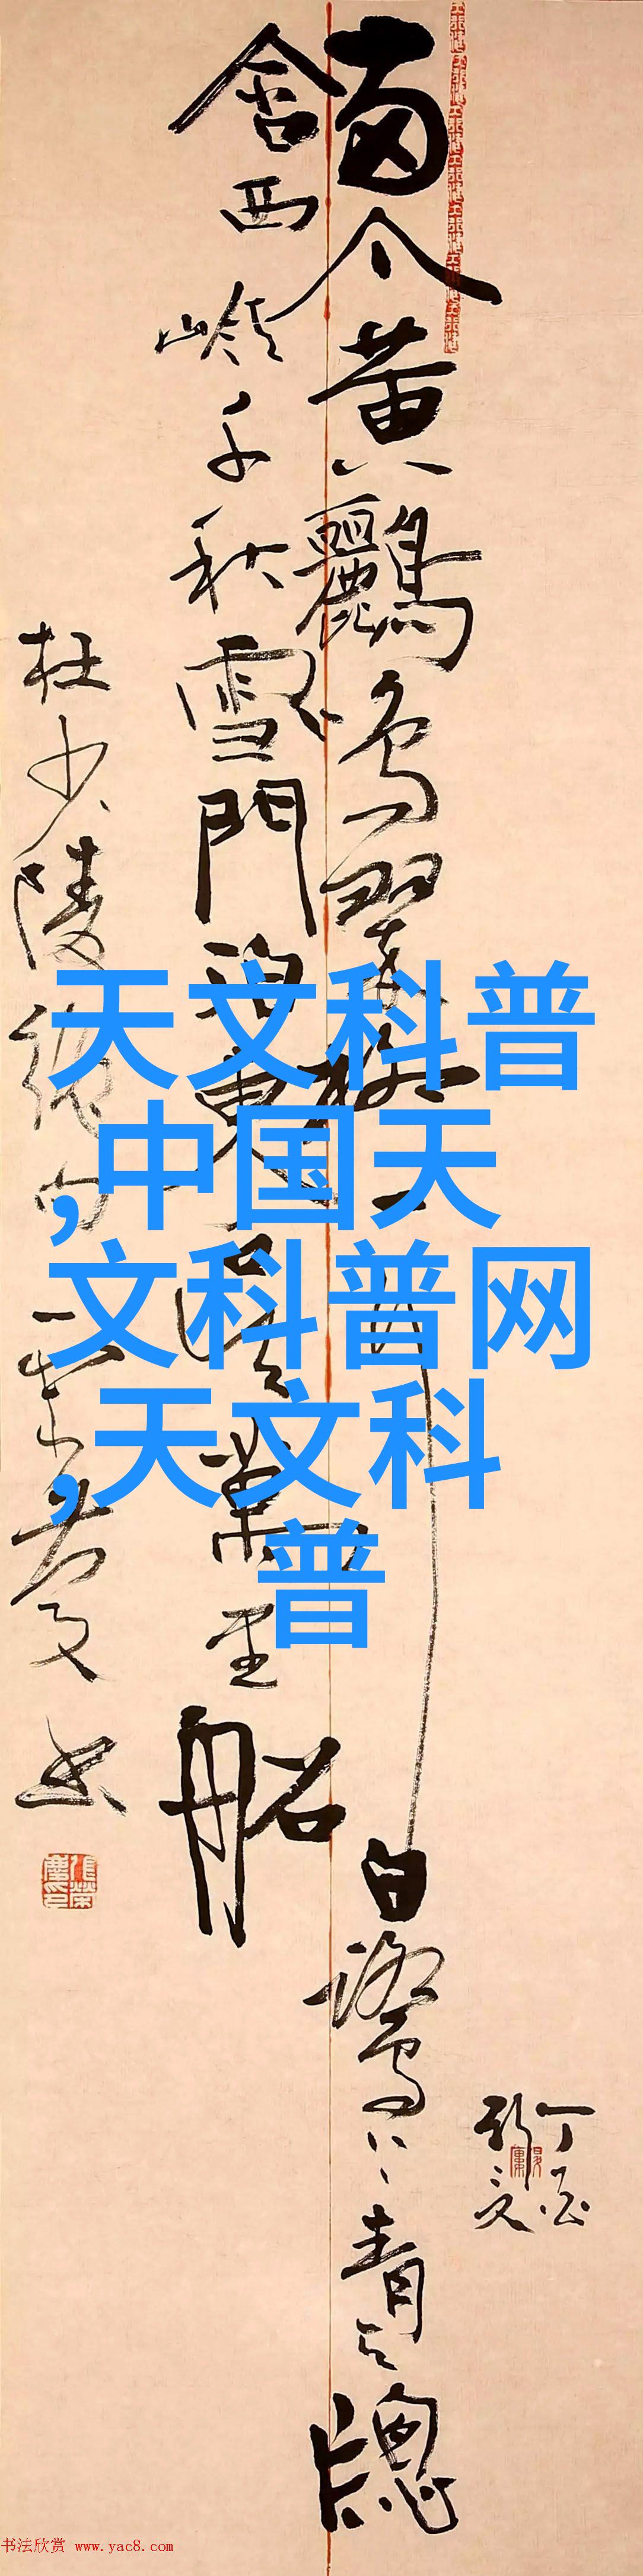 兩个黃鸝鳴翠柳一行白鷺上青天窗
含西嶺千秋雪門泊東吳萬里船
杜少陵絕句 榮慶書
丁酉
天文科普
,中国天
文科普网
,天文科
普
书法欣赏 www.yac8.com